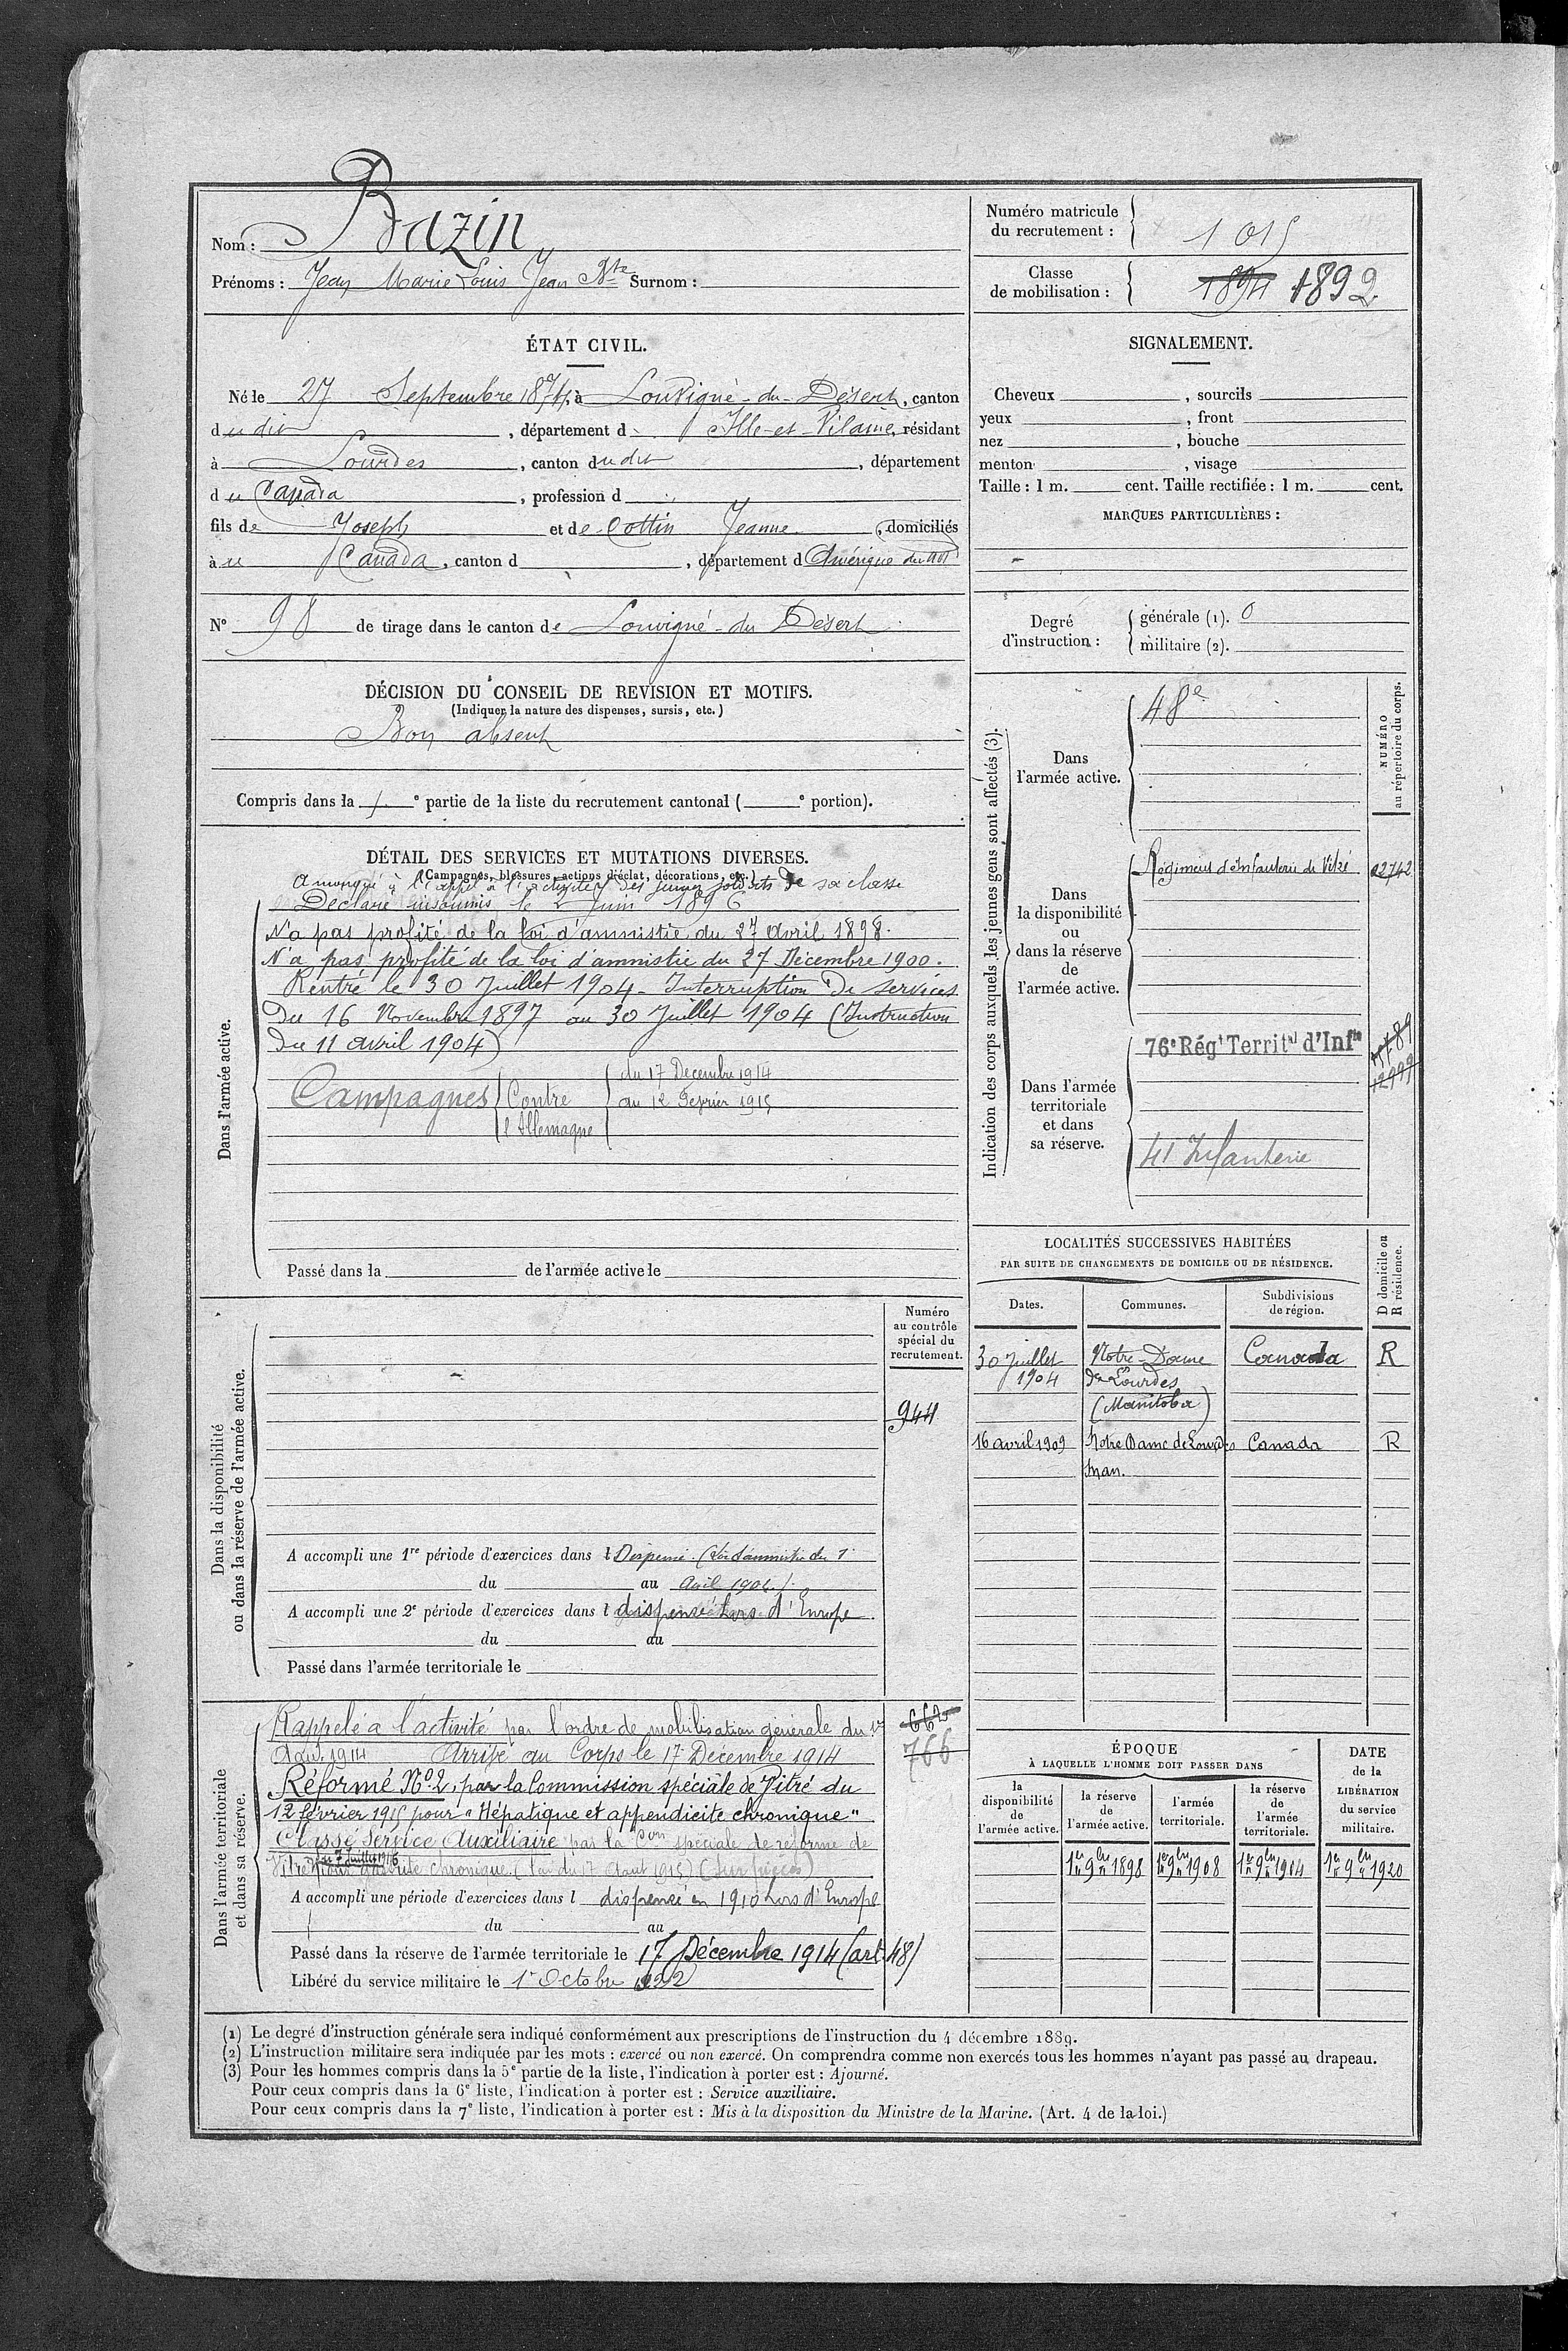 Nom : Bazin
Prénoms : Jean Marie Louis Jean Bte Surnom :
Numéro matricule
du recrutement : 1015
Classe
de mobilisation : 1894 1892
ÉTAT CIVIL.
Né le 27 Septembre 1874, à Louvigné-du-Désert, canton
dudit, département d'Ille-et-Vilaine, résidant
à Lourdes, canton dudit, département
du Canada, profession d
fils de Joseph et de Cottin Jeanne, domiciliés
au Canada, canton d, département d Amérique du
N° 98 de tirage dans le canton de Louvigné-du-Désert
SIGNALEMENT.
Cheveux, sourcils
yeux, front
nez, bouche
menton, visage
Taille : 1 m. cent. Taille rectifiée : 1 m. cent.
MARQUES PARTICULIÈRES :
Degré
d'instruction :
générale (1). 0
militaire (2).
DÉCISION DU CONSEIL DE REVISION ET MOTIFS.
(Indiquer la nature des dispenses, sursis, etc.)
Bon absent
Compris dans la 1e partie de la liste du recrutement cantonal (e portion).
DÉTAIL DES SERVICES ET MUTATIONS DIVERSES.
(Campagnes, blessures, actions d'éclat, décorations, etc.)
A manqué à l'appel à l'activité des jeunes soldats de sa classe
Déclaré insoumis le 2 Juin 1896
N'a pas profité de la loi d'amnistie du 27 Avril 1898.
N'a pas profité de la loi d'amnistie du 27 Décembre 1900.
Rentré le 30 Juillet 1904 - Interruption de services
du 16 Novembre 1897 au 30 Juillet 1904 (Instruction
du 11 avril 1904)
Campagnes Contre l'Allemagne
du 17 Decembre 1914
au 12 Fevrier 1915
Dans l'armée active.
Passé dans la de l'armée active le
Indication des corps auxquels les jeunes gens sont affectés (3).
NUMÉRO
au répertoire du corps.
Dans
l'armée active.
48e
Dans
la disponibilité
ou
dans la réserve
de
l'armée active.
Régiment d'Infanterie de Vitré 02742
Dans l'armée
territoriale
et dans
sa réserve.
76e Régt Territal d'Infie
12999
41 Infanterie
LOCALITÉS SUCCESSIVES HABITÉES
PAR SUITE DE CHANGEMENTS DE DOMICILE OU DE RÉSIDENCE.
D domicile ou
R résidence.
Dates. Communes. Subdivisions
de région.
30 Juillet 1904 Notre-Dame de Lourdes (Manitoba) Canada R
16 avril 1909 Notre Dame de Lourdes Man. Canada R
Dans la disponibilité
ou dans la réserve de l'armée active.
Numéro
au contrôle
spécial du
recrutement.
944
A accompli une 1re période d'exercices dans l Dispensé (Loi d'amnistie du 1r
du au Avril 1904).
A accompli une 2e période d'exercices dans l dispensé hors d'Europe
du au
Passé dans l'armée territoriale le
Dans l'armée territoriale
et dans sa réserve.
Rappelé à l'activité par l'ordre de mobilisation générale du 1er
Août 1914 Arrivé au Corps le 17 Décembre 1914
Réformé No 2, par la Commission spéciale de Vitré du
12 février 1915 pour "Hépatique et appendicite chronique"
Classé Service Auxiliaire par la Con spéciale de réforme de
Vitré du 7 Juillet 1916 chronique (Loi du 17 Aout 1915) (Sur pièces)
662
766
A accompli une période d'exercices dans l dispensé en 1910 hors d'Europe
du au
Passé dans la réserve de l'armée territoriale le 17 Décembre 1914 (art. 48)
Libéré du service militaire le 1er Octobre 1922
ÉPOQUE
À LAQUELLE L'HOMME DOIT PASSER DANS
DATE
de la
LIBÉRATION
du service
militaire.
la
disponibilité
de
l'armée active.
la réserve
de
l'armée active.
l'armée
territoriale.
la réserve
de
l'armée
territoriale.
1er 9bre 1898 1er 9bre 1908 1er 9bre 1914 1er 9bre 1920
(1) Le degré d'instruction générale sera indiqué conformément aux prescriptions de l'instruction du 4 décembre 1889.
(2) L'instruction militaire sera indiquée par les mots : exercé ou non exercé. On comprendra comme non exercés tous les hommes n'ayant pas passé au drapeau.
(3) Pour les hommes compris dans la 5e partie de la liste, l'indication à porter est : Ajourné.
Pour ceux compris dans la 6e liste, l'indication à porter est : Service auxiliaire.
Pour ceux compris dans la 7e liste, l'indication à porter est : Mis à la disposition du Ministre de la Marine. (Art. 4 de la loi.)